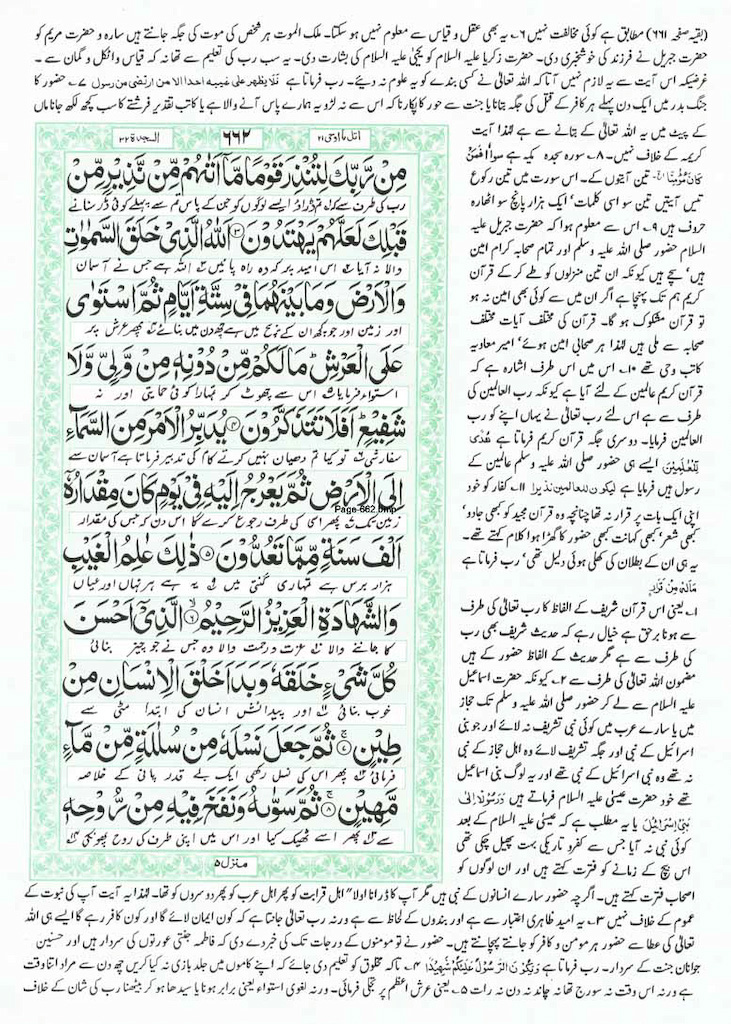 (بقیہ صفحہ ۶۶۱) مطابق ہے کوئی مخالفت نہیں ۶؎ یہ بھی عقل و قیاس سے معلوم نہیں ہو سکتا۔ ملک الموت ہر شخص کی موت کی جگہ جانتے ہیں سارہ و حضرت مریم کو
حضرت جبریل نے فرزند کی خوشخبری دی۔ حضرت زکریا علیہ السلام کو یحییٰ علیہ السلام کی بشارت دی۔ یہ سب رب کی تعلیم سے تھا نہ کہ قیاس واٹکل و گمان سے۔
غرضیکہ اس آیت سے یہ لازم نہیں آتا کہ اللہ تعالیٰ نے کسی بندے کو یہ علوم نہ دیئے۔ رب فرماتا ہے فلا یظھر علی غیبہ احدا الا من ارتضی من رسول ۷؎ حضور کا
جنگ بدر میں ایک دن پہلے ہر کافر کے قتل کی جگہ بتانا یا جنت سے حور کا پکارنا کہ اس سے نہ لڑو یہ ہمارے پاس آنے والا ہے یا کاتب تقدیر فرشتے کا سب کچھ لکھ جانا ماں
کے پیٹ میں یہ اللہ تعالیٰ کے بتانے سے ہے لہٰذا آیت
کریمہ کے خلاف نہیں۔ ۸؎ سورہ سجدہ مکیہ ہے سوا اَفَمَنْ
كَانَ مُؤْمِنًا الخ تین آیتوں کے۔ اس سورت میں تین رکوع
تیس آیتیں تین سو اسی کلمات، ایک ہزار پانچ سو اٹھارہ
حروف ہیں ۹؎ اس سے معلوم ہوا کہ حضرت جبریل علیہ
السلام حضور صلی اللہ علیہ وسلم اور تمام صحابہ کرام امین
ہیں، سچے ہیں کیونکہ ان تین منزلوں کو طے کر کے قرآن
کریم ہم تک پہنچا ہے اگر ان میں سے کوئی بھی امین نہ ہو
تو قرآن مشکوک ہو گا۔ قرآن کی مختلف آیات مختلف
صحابہ سے ملی ہیں لہٰذا ہر صحابی امین ہوئے، امیر معاویہ
کاتب وحی تھے ۱۰؎ اس میں اس طرف اشارہ ہے کہ
قرآن کریم عالمین کے لئے آیا ہے کیونکہ رب العالمین کی
طرف سے ہے اس لئے رب تعالیٰ نے یہاں اپنے کو رب
العالمین فرمایا۔ دوسری جگہ قرآن کریم فرماتا ہے هُدًى
لِّلْعٰلَمِيْنَ ایسے ہی حضور صلی اللہ علیہ وسلم عالمین کے
رسول ہیں فرمایا ہے لیکون للعالمین نذیرا ۱۱؎ کفار کو خود
اپنی ایک بات پر قرار نہ تھا چنانچہ وہ قرآن مجید کو کبھی جادو،
کبھی شعر، کبھی کہانت کبھی حضور کا گھڑا ہوا کلام کہتے تھے۔
یہ ہی ان کے بطلان کی کھلی ہوئی دلیل تھی، رب فرماتا ہے
مَالَهٗ مِنْ قَرَارٍ
۱؎ یعنی اس قرآن شریف کے الفاظ کا رب تعالیٰ کی طرف
سے ہونا برحق ہے خیال رہے کہ حدیث شریف بھی رب
کی طرف سے ہے مگر حدیث کے الفاظ حضور کے ہیں
مضمون اللہ تعالیٰ کی طرف سے ۲؎ کیونکہ حضرت اسماعیل
علیہ السلام سے لے کر حضور صلی اللہ علیہ و سلم تک حجاز
میں یا سارے عرب میں کوئی نبی تشریف نہ لائے اور جو بنی
اسرائیل کے نبی اور جگہ تشریف لائے وہ اہل حجاز کے نبی
نہ تھے وہ نبی اسرائیل کے نبی تھے اور یہ لوگ بنی اسماعیل
تھے خود حضرت عیسٰی علیہ السلام فرماتے ہیں وَرَسُوْلًا اِلٰى
بَنِىْٓ اِسْرَآئِيْلَ یا یہ مطلب ہے کہ عیسٰی علیہ السلام کے بعد
کوئی نبی نہ آیا جس سے کفرو تاریکی بہت پھیل چکی تھی
اس بیچ کے زمانے کو فترت کہتے ہیں اور ان لوگوں کو
السجدۃ ۳۲ ۶۶۲ اتل ما اوحی ۲۱
مِنْ رَّبِّكَ لِتُنْذِرَ قَوْمًا مَّآ اَتٰىهُمْ مِّنْ نَّذِيْرٍ مِّنْ
رب کی طرف سے کہ تم ڈراؤ ایسے لوگوں کو جن کے پاس تم سے پہلے کوئی ڈر سنانے
قَبْلِكَ لَعَلَّهُمْ يَهْتَدُوْنَ ۳ اَللّٰهُ الَّذِيْ خَلَقَ السَّمٰوٰتِ
والا نہ آیا اس امید پر کہ وہ راہ پائیں اللہ ہے جس نے آسمان
وَالْاَرْضَ وَمَا بَيْنَهُمَا فِيْ سِتَّةِ اَيَّامٍ ثُمَّ اسْتَوٰى
اور زمین اور جو کچھ ان کے بیچ میں ہے چھ دن میں بنائے پھر عرش پر
عَلَى الْعَرْشِ مَا لَكُمْ مِّنْ دُوْنِهٖ مِنْ وَّلِيٍّ وَّلَا
استواء فرمایا اس سے چھوٹ کر تمہارا کوئی حمایتی اور نہ
شَفِيْعٍ اَفَلَا تَتَذَكَّرُوْنَ ۴ يُدَبِّرُ الْاَمْرَ مِنَ السَّمَآءِ
سفارشی تو کیا تم دھیان نہیں کرتے کام کی تدبیر فرماتا ہے آسمان سے
اِلَى الْاَرْضِ ثُمَّ يَعْرُجُ اِلَيْهِ فِيْ يَوْمٍ كَانَ مِقْدَارُهٗٓ
Page-662.bmp
زمین تک پھر اسی کی طرف رجوع کرے گا اس دن کہ جس کی مقدار
اَلْفَ سَنَةٍ مِّمَّا تَعُدُّوْنَ ۵ ذٰلِكَ عٰلِمُ الْغَيْبِ
ہزار برس ہے تمہاری گنتی میں یہ ہے ہر نہاں اور عیاں
وَالشَّهَادَةِ الْعَزِيْزُ الرَّحِيْمُ ۶ الَّذِيْٓ اَحْسَنَ
کا جاننے والا عزت و رحمت والا وہ جس نے جو چیز بنائی
كُلَّ شَيْءٍ خَلَقَهٗ وَبَدَاَ خَلْقَ الْاِنْسَانِ مِنْ
خوب بنائی اور پیدائش انسان کی ابتدا مٹی سے
طِيْنٍ ۷ ثُمَّ جَعَلَ نَسْلَهٗ مِنْ سُلٰلَةٍ مِّنْ مَّآءٍ
فرمائی پھر اس کی نسل رکھی ایک بے قدر پانی کے خلاصہ
مَّهِيْنٍ ۸ ثُمَّ سَوّٰىهُ وَنَفَخَ فِيْهِ مِنْ رُّوْحِهٖ
سے پھر اسے ٹھیک کیا اور اس میں اپنی طرف کی روح پھونکی
منزل ۵
اصحاب فترت کہتے ہیں۔ اگرچہ حضور سارے انسانوں کے نبی ہیں مگر آپ کا ڈرانا اولا" اہل قرابت کو پھر اہل عرب کو پھر دوسروں کو تھا۔ لہٰذا یہ آیت آپ کی نبوت کے
عموم کے خلاف نہیں ۳؎ یہ امید ظاہری اعتبار سے ہے اور بندوں کے لحاظ سے ہے ورنہ رب تعالیٰ جانتا ہے کہ کون ایمان لائے گا اور کون کافر رہے گا ایسے ہی اللہ
تعالیٰ کی عطا سے حضور ہر مومن و کافر کو جانتے پہچانتے ہیں۔ حضور نے تو مومنوں کے درجات تک کی خبر دے دی کہ فاطمہ جنتی عورتوں کی سردار ہیں اور حسنین
جوانان جنت کے سردار۔ رب فرماتا ہے وَيَكُوْنَ الرَّسُوْلُ عَلَيْكُمْ شَهِيْدًا ۴؎ تاکہ مخلوق کو تعلیم دی جائے کہ اپنے کاموں میں جلد بازی نہ کیا کریں چھ دن سے مراد اتنا وقت
ہے ورنہ اس وقت نہ سورج تھا نہ چاند نہ دن نہ رات ۵؎ یعنی عرش اعظم پر تجلی فرمائی۔ ورنہ لغوی استواء یعنی برابر ہونا یا سیدھا ہو کر بیٹھنا رب کی شان کے خلاف